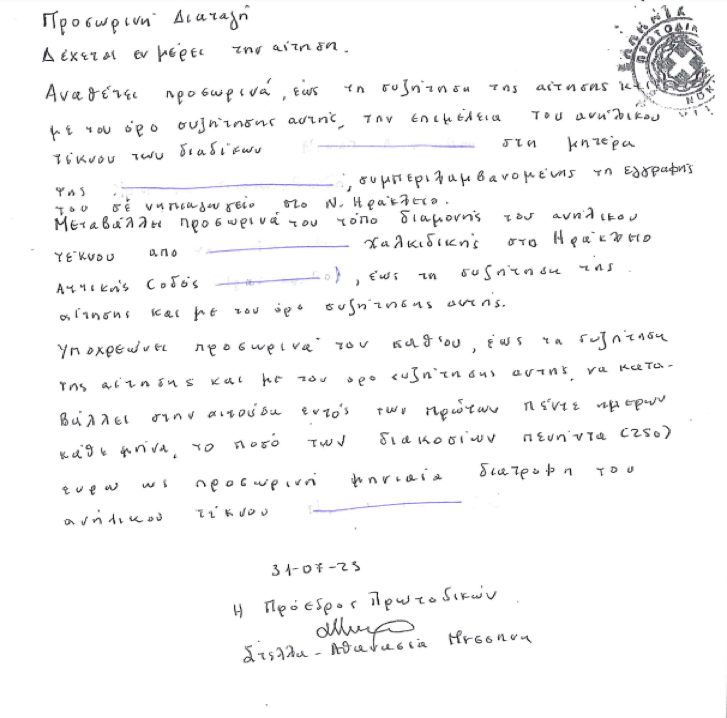 Προσωρινή Διαταγή
Δέχεται εν μέρει την αίτηση.
Αναθέτει προσωρινά, έως τη συζήτηση της αίτησης και
με τον όρο συζήτησης αυτής, την επιμέλεια του ανηλίκου
τέκνου των διαδίκων στη μητέρα
της , συμπεριλαμβανομένης τη εγγραφής
του σε νηπιαγωγείο στο Ν. Ηράκλειο.
Μεταβάλλει προσωρινά τον τόπο διαμονής του ανηλίκου
τέκνου από Χαλκιδικής στο Ηράκλειο
Αττικής (οδός ), έως τη συζήτηση της
αίτησης και με τον όρο συζήτησης αυτής.
Υποχρεώνει προσωρινά τον καθ'ου, έως τη συζήτηση
της αίτησης και με τον όρο συζήτησης αυτής, να κατα-
βάλλει στην αιτούσα εντός των πρώτων πέντε ημερών
κάθε μήνα, το ποσό των διακοσίων πενήντα (250)
ευρώ ως προσωρινή μηνιαία διατροφή του
ανήλικου τέκνου
31-07-23
Η Πρόεδρος Πρωτοδικών
Στέλλα - Αθανασία